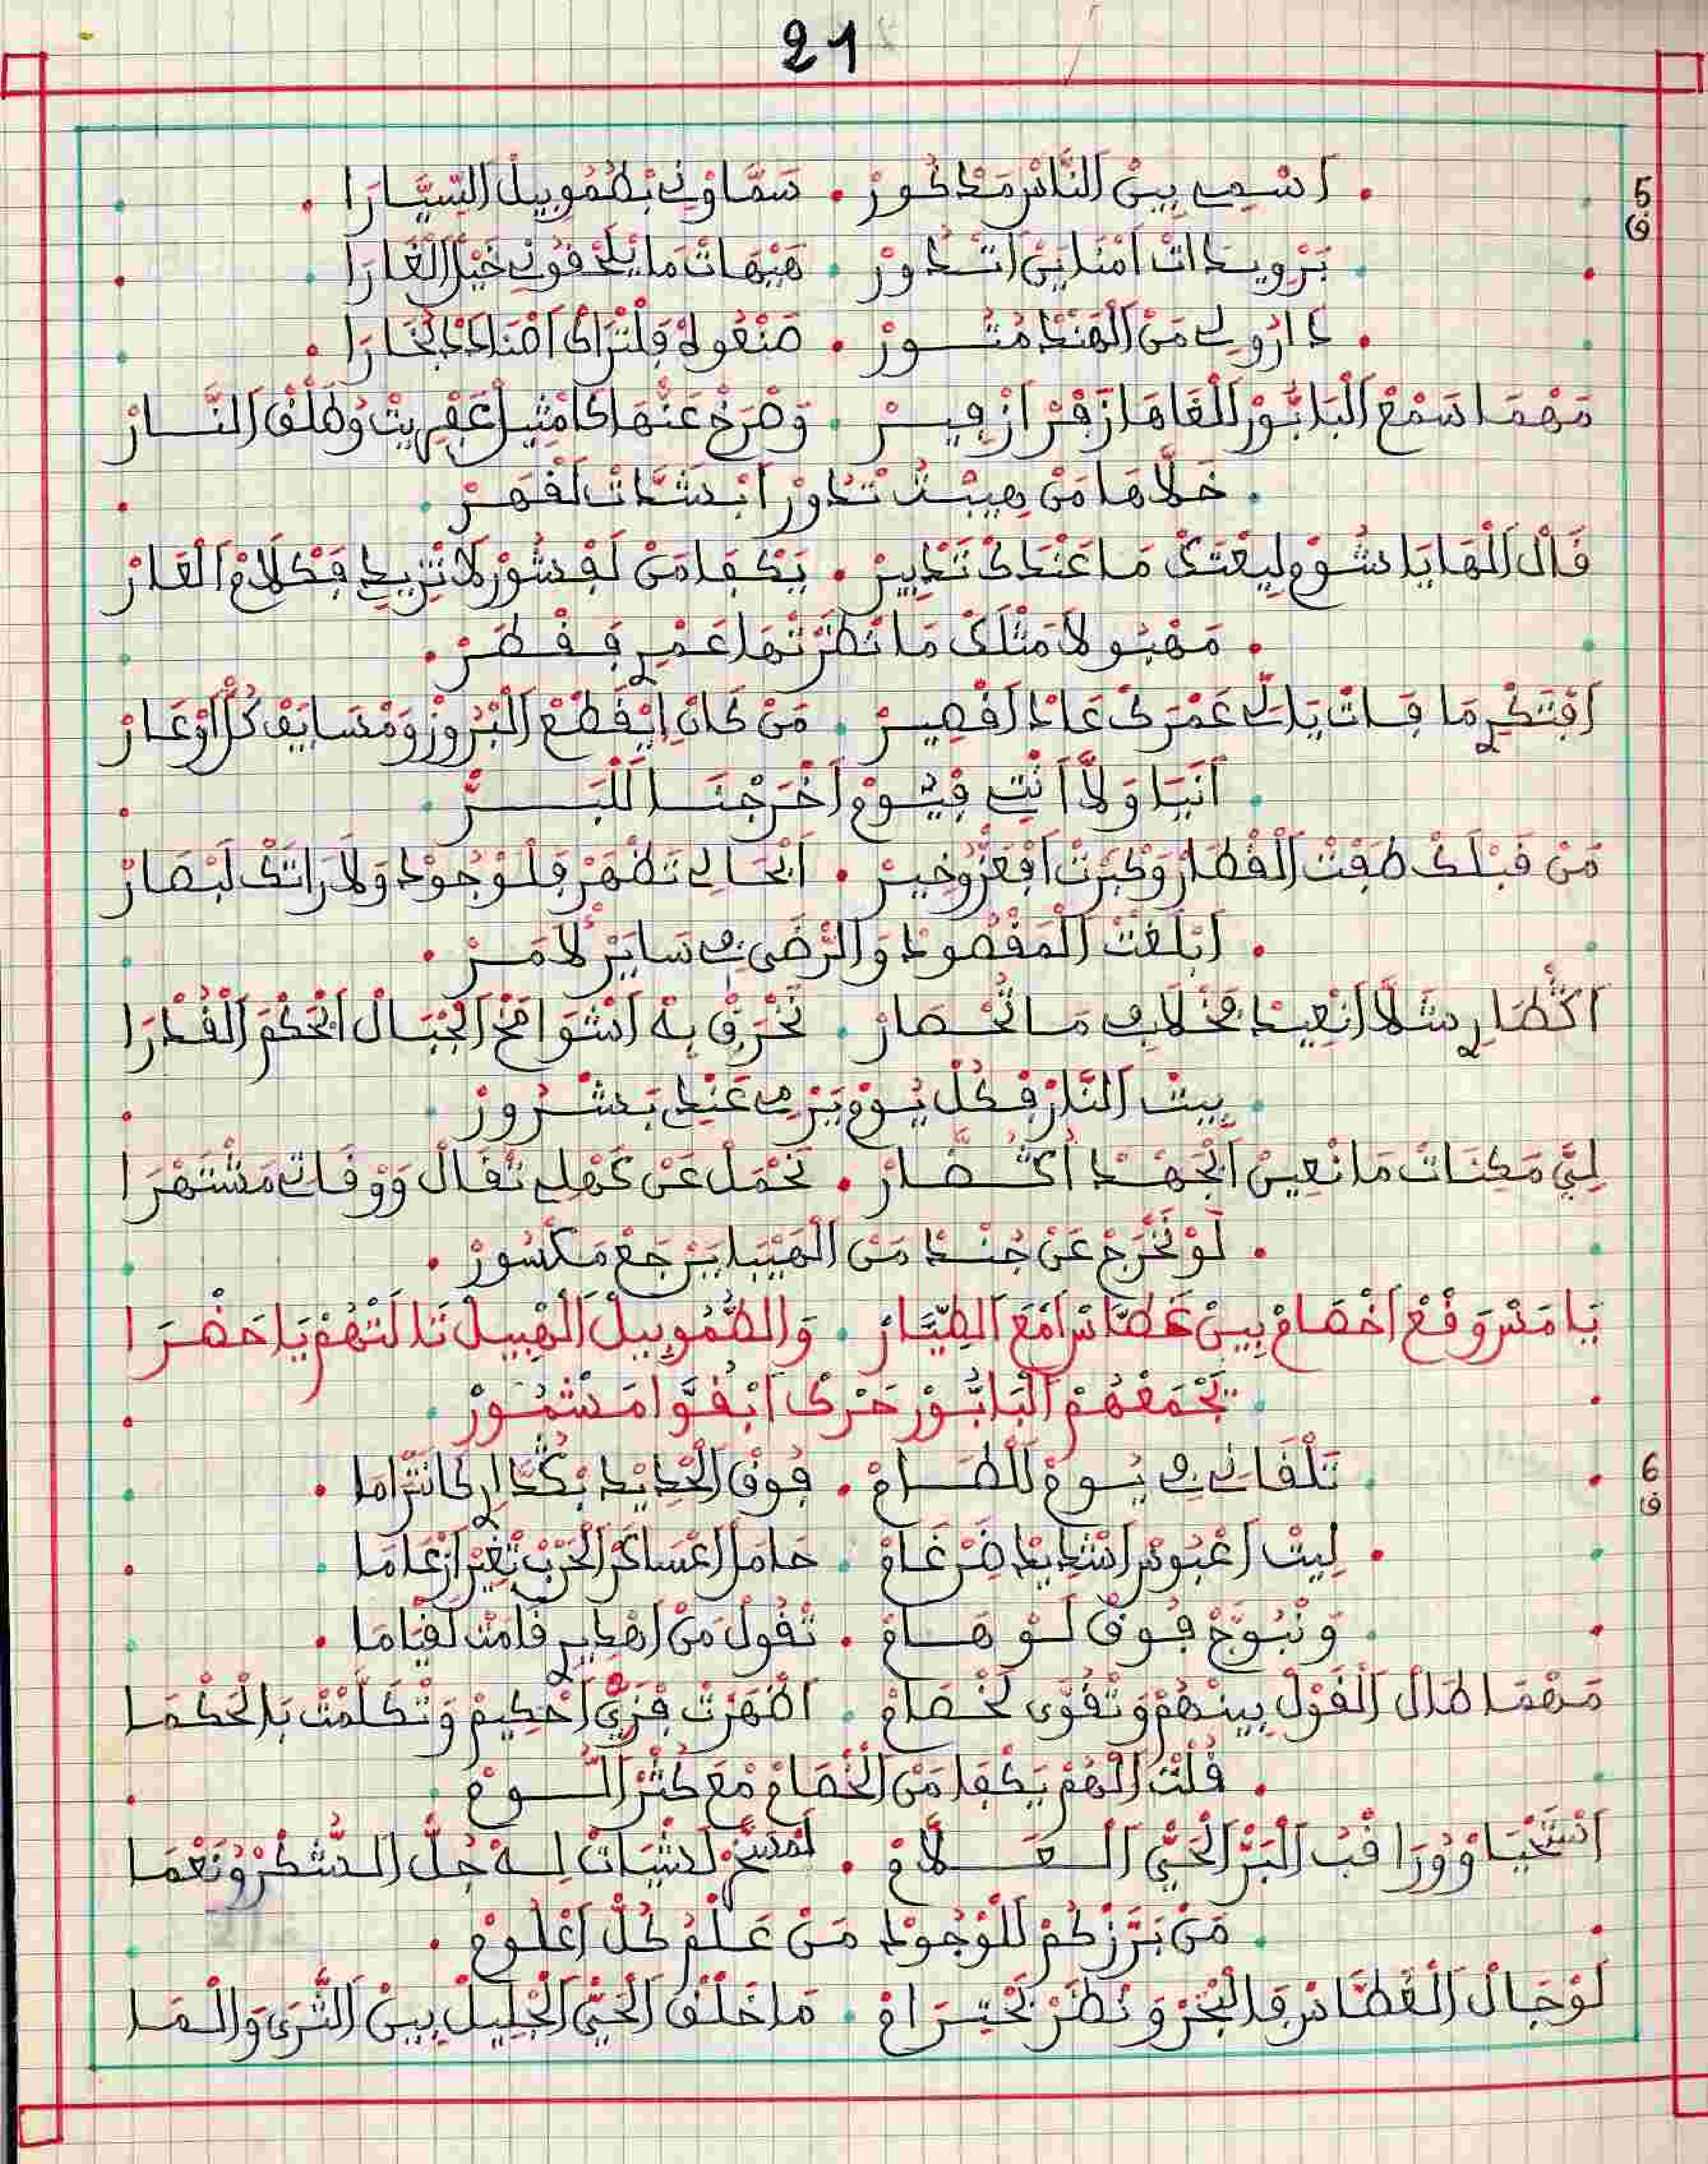 21
5
ف
اسمي بين الناس مذكور . سماوني بطموبيل السيارا
برويدات امناين اتدور . هيهات ما يلحقوني خيل الغارا
دارولي من الهند متور . صنعوله فلتراك اصناد البخارا
مهما سمع البابور للغاها زفر ازفير . وصرخ عنها كامثيل عفريت وطلق النار
خلاها من هيبت تدور ابشدات لقهر
قال الها يا شوم ليعتك ما عندك تدبير . يكفا من لفشور لا تزيد فكلام العار
مهبولا مثلك ما نظرتها عمري فقطر
افتكري ما فات يالي عمرك عاد اقصير . من كان ايقطع البرور ومسايف كل اوعار
أنيا ولا أنت فيوم اخرجنا للبر
من قبلك طفت القطار وكبرت افعز وخير . انحالي تظهر فلوجود ولا راتك لبصار
ابلغت المقصود والرضى في ساير لامر
اكثاري شلا انعيد فخلافي ما تحصار . نخرق به اشوامخ الجبال ابحكم القدرا
بيت النار فكل يوم يرمي عندي بشرور
لي مكنات ما نعين الجهد اكثار . نحمل عن كهلي تقال ووقاتي مشتهرا
لو نخرج عن جند من الهيبا يرجع مكسور
يا من وقع اخصام بين غطاس امع الطيار . والطموبيل الهبيل ثالثهم يا حضرا
تجمعهم البابور حرك ابقوا مشمور
6
ف
تلقاني في يوم للطام . فوق الحديد بكداري كانتراما
ليث اعبوس اشديد ضرغام . حامل اعساكر الحرب تغير ازعاما
ونبوج فوق لوهام . تقول من اهديري قامت لقياما
مهما طال القول بينهم وتقوى لخصام . اظهرت فزي احكيم وتكلمت بالحكما
قلت الهم يكفا من الخصام مع كثر اللوم
انستحياو وراقب البر الحي العلام . لمشيخ لشيات له جل الشكر ونعما
من برزكم للوجود من علم كل اعلوم
لو جال الغطاس فالبحر ونظر بحترام . ما خلق الحي الجليل بين الثرى والما